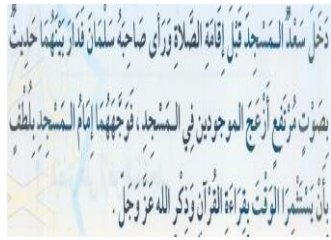 دَخَلَ سَعْدٌ الـمَسْجِدَ قَبْلَ إِقَامَةِ الصَّلَاةِ وَرَأَى صَاحِبَهُ سَلْمَانَ فَدَارَ بَيْنَهُما حَدِيثٌ
بِصَوْتٍ مُرْتَفِعٍ أَزْعَجَ الموجودين فِي الـمَسْجِدِ ، فَوَجَّهَهُما إِمَامُ الـمَسْجِدِ بِلُطْفٍ
بِأَنْ يَسْتَثْمِرَا الوَقْتَ بِقِرَاءَةِ القُرْآنِ وَذِكْرِ الله عَزَّ وَجَلَّ .